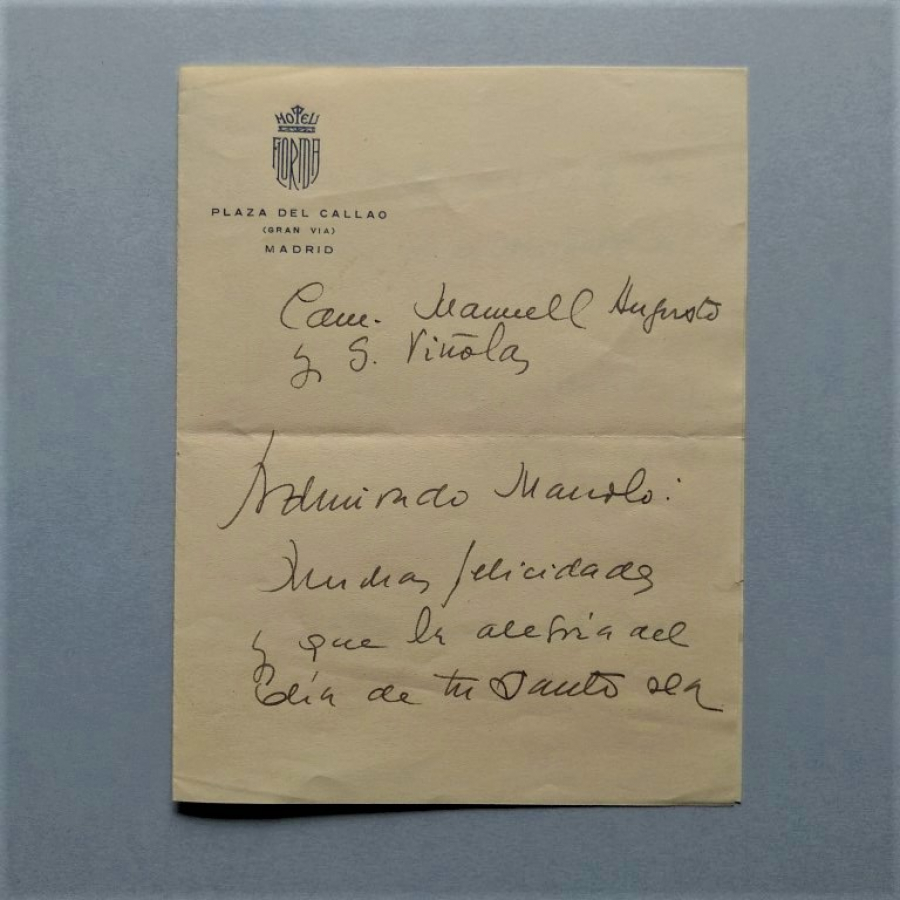 HOTEL
FLORIDA
PLAZA DEL CALLAO
(GRAN VIA)
MADRID
Cam. Manuell Augusto
y G. Viñolas
Admirado Manolo:
Muchas felicidades
y que la alegría del
día de tu Santo sea